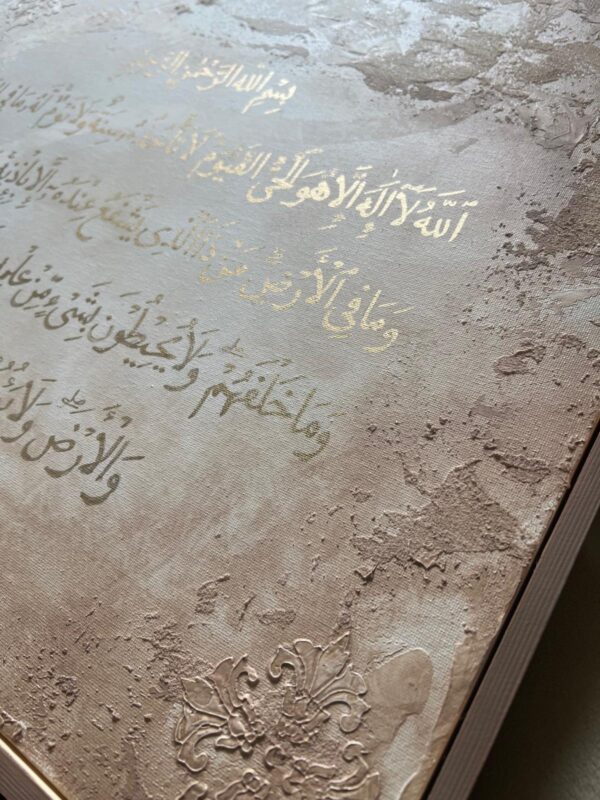 بِسْمِ اللهِ الرَّحْمٰنِ الرَّحِيمِ
اَللَّهُ لَآ اِلٰهَ اِلَّا هُوَ الْحَىُّ الْقَيُّومُ لَا تَأْخُذُهُ سِنَةٌ وَلَا نَوْمٌ لَهُ مَا فِي
وَمَا فِي الْأَرْضِ مَنْ ذَا الَّذِى يَشْفَعُ عِنْدَهُ إِلَّا بِإِذْنِهِ
وَمَا خَلْفَهُمْ وَلَا يُحِيطُونَ بِشَىْءٍ مِّنْ
وَالْأَرْضَ وَلَا